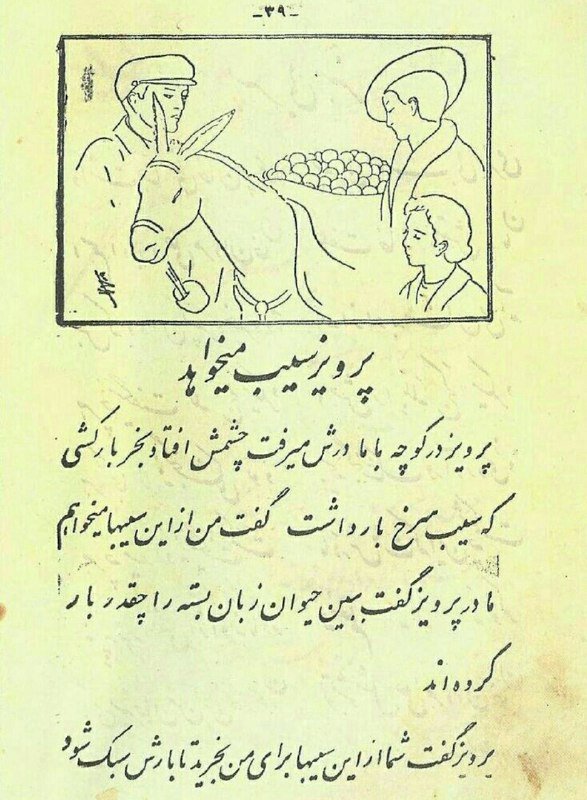 -۳۹-
پرویز سیب میخواهد
پرویز در کوچه با مادرش میرفت چشمش افتاد بخر بارکشی
که سیب سرخ بار داشت گفت من از این سیبها میخواهم
مادر پرویز گفت ببین حیوان زبان بسته را چقدر بار
کرده‌اند
پرویز گفت شما از این سیبها برای من بخرید تا بارش سبک شود